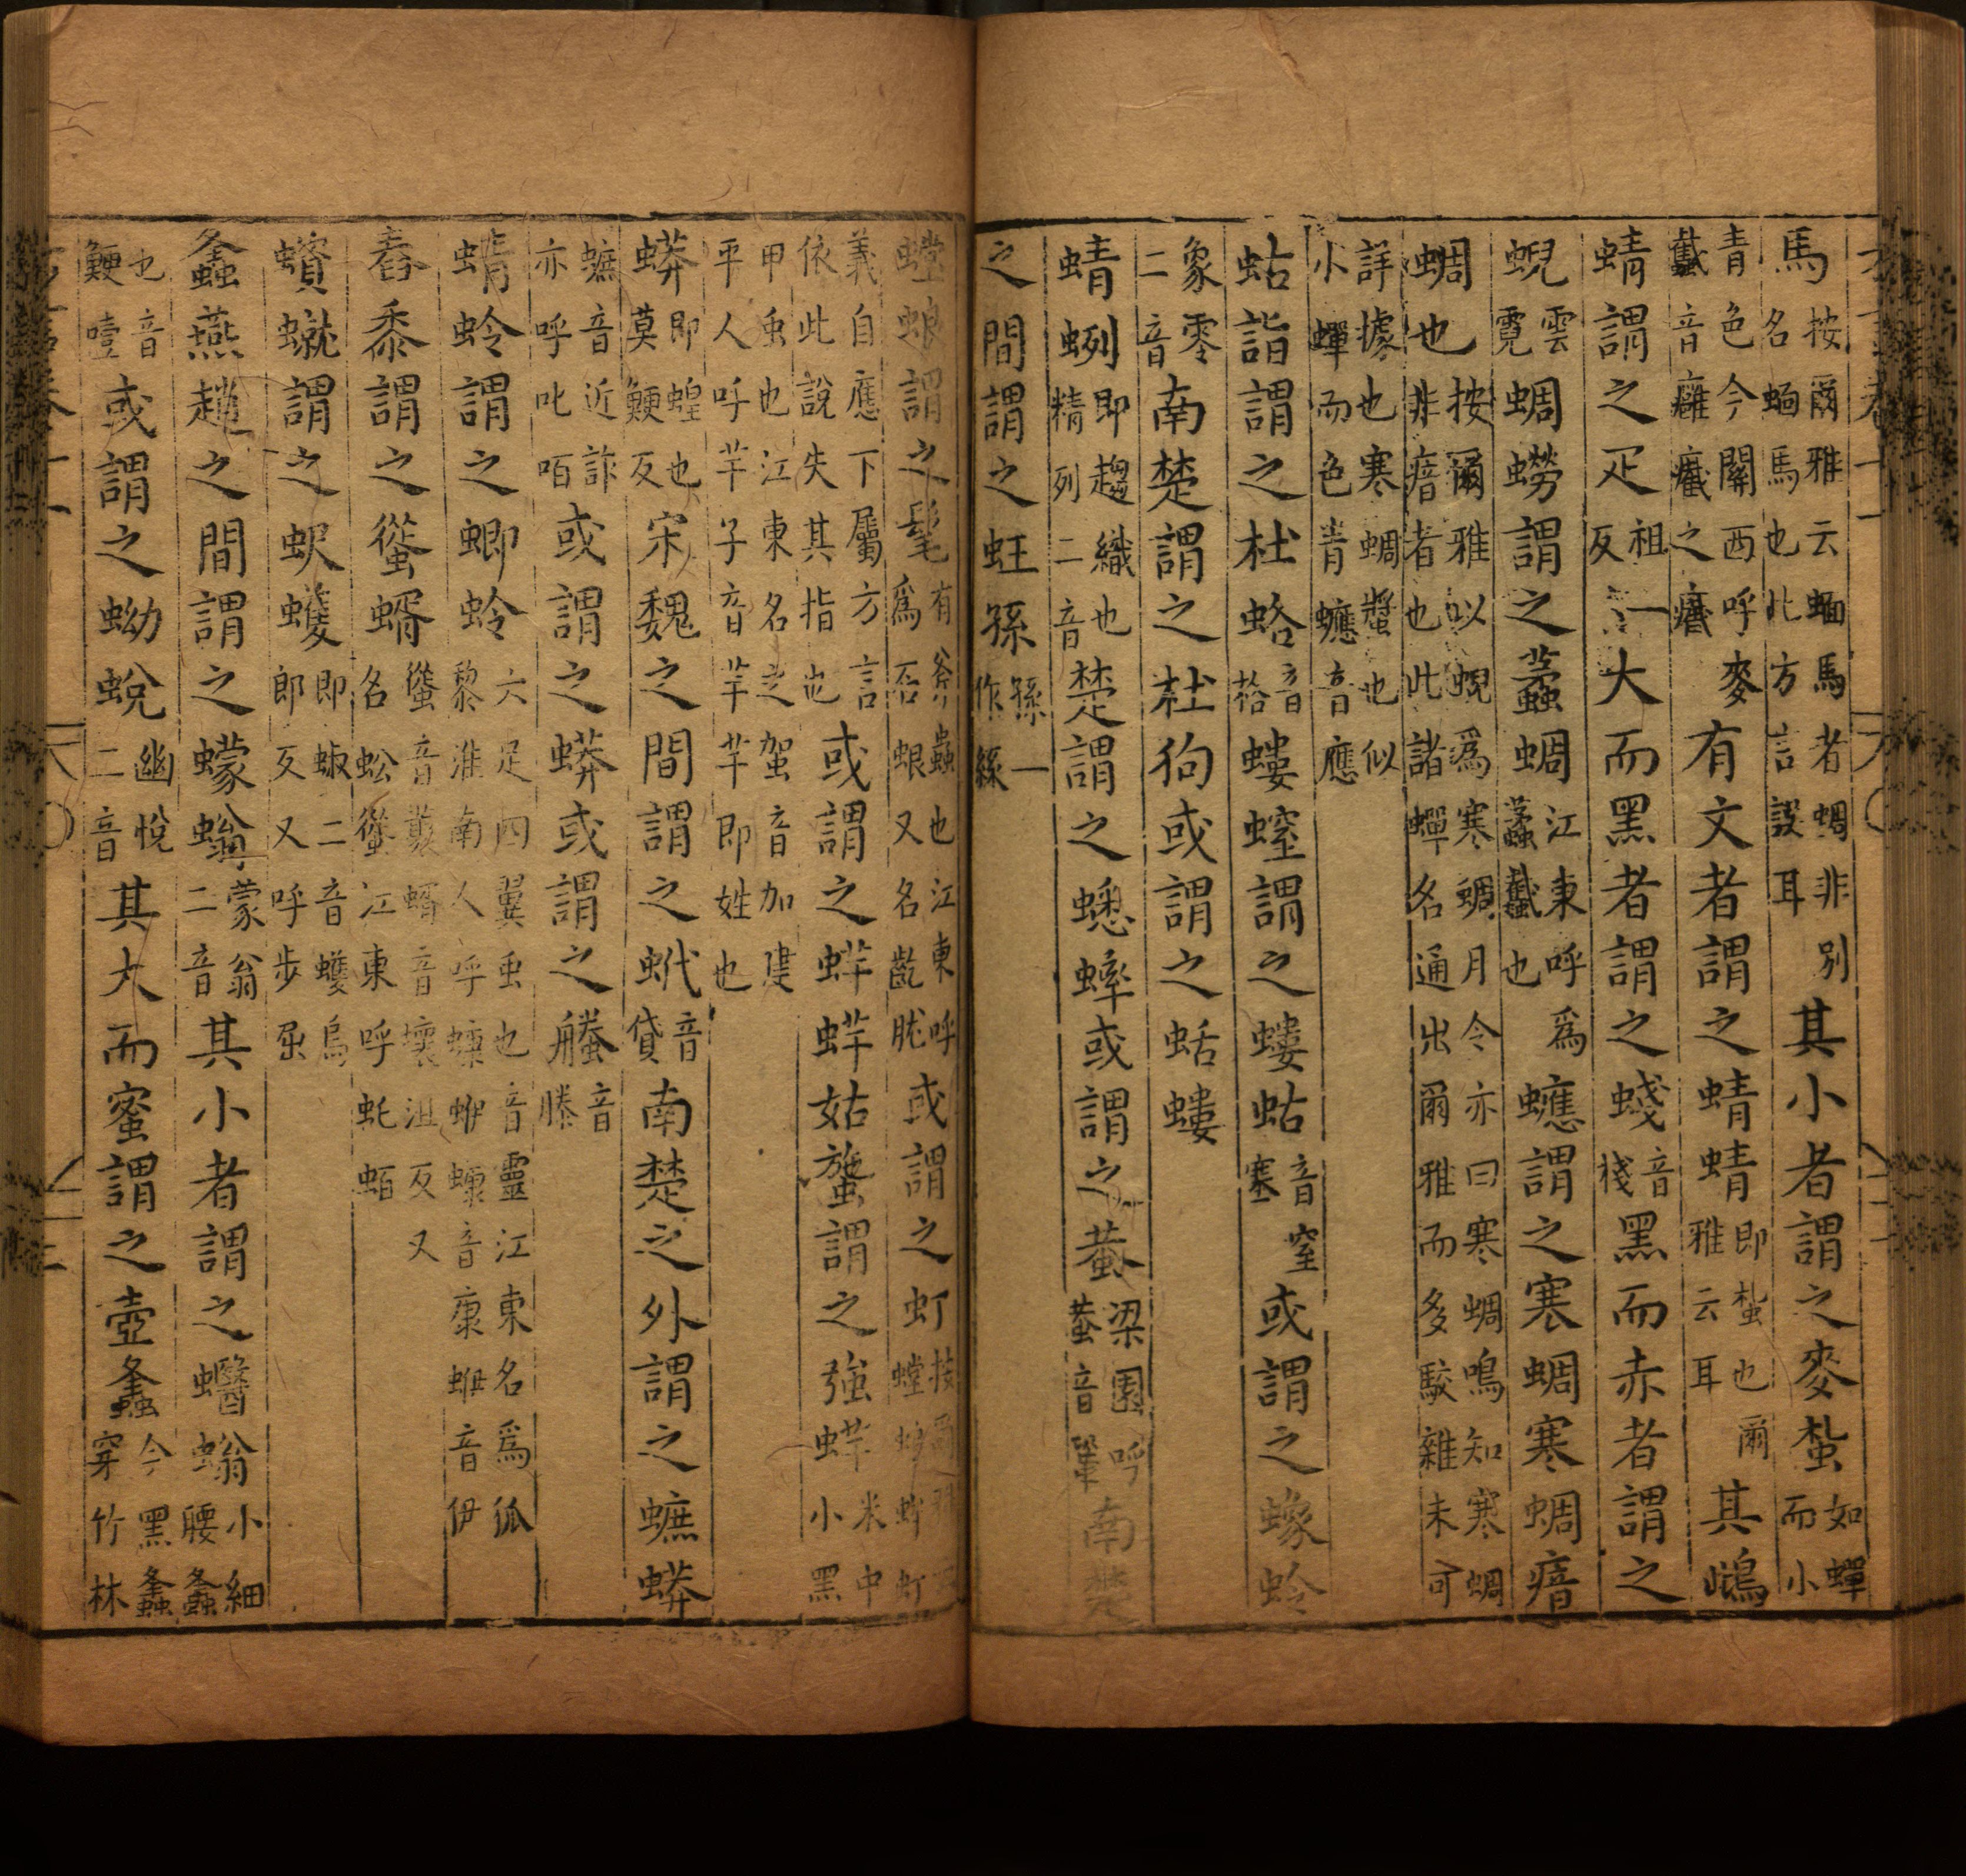 馬按爾雅云蝒馬者蜩非別名蝒馬也此方言誤耳其小者謂之麥蚻如蟬而小
青色今關西呼麥𧐗音癰癤之癤有文者謂之蜻蜻即蚻也爾雅云耳其
蜻謂之疋祖一反大而黑者謂之蝬音棧黑而赤者謂之
蜺雲霓蜩蟧謂之蠽蜩江東呼為蠽𧐗也𧓲謂之寒蜩寒蜩瘖
蜩也按爾雅以蜺為寒蜩月令亦曰寒蜩鳴知寒蜩非瘖者也此諸蟬名通出爾雅而多駮雜未可
詳據也寒蜩螿也似小蟬而色青𧓲音應
蛄詣謂之杜蛒音格螻螲謂之螻蛄音窒塞或謂之蟓蛉
象零二音南楚謂之杜狗或謂之蛞螻
蜻蛚即趨織也精列二音楚謂之蟋蟀或謂之蛬梁園呼蛬音鞏南楚
之間謂之蚟孫孫一作絲
螳蜋謂之髦有斧蟲也江東呼為石蜋又名齕肬或謂之虰按爾雅螳蜋蛑虰
義自應下屬方言依此說失其指也或謂之蛘蛘姑䗐謂之強蛘米中小黑
甲虫也江東名之䖥音加建平人呼芉子音芉芉即姓也
蟒即蝗也莫鯁反宋魏之間謂之䖣音貸南楚之外謂之蟅蟒
蟅音近詐亦呼吒咟或謂之蟒或謂之䗹音滕
蜻蛉謂之蝍蛉六足四翼虫也音靈江東名為狐黎淮南人呼䗧蛜䗧音康蛜音伊
舂黍謂之䗥蝑䗥音藂蝑音壞沮反又名蚣䗥江東呼虴蛨
蠀䗯謂之蚇蠖即蛓二音蠖烏郎反又呼步屈
蠭燕趙之間謂之蠓螉蒙翁二音其小者謂之蠮螉小細腰蠭
也音鯁噎或謂之蚴蛻幽悅二音其大而蜜謂之壺蠭今黑蠭穿竹林